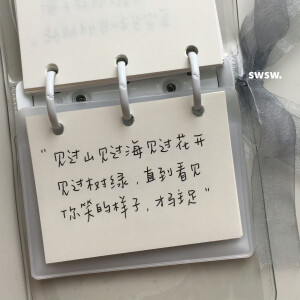 swsw.
“见过山见过海见过花开
见过树绿，直到看见
你笑的样子，才满足”